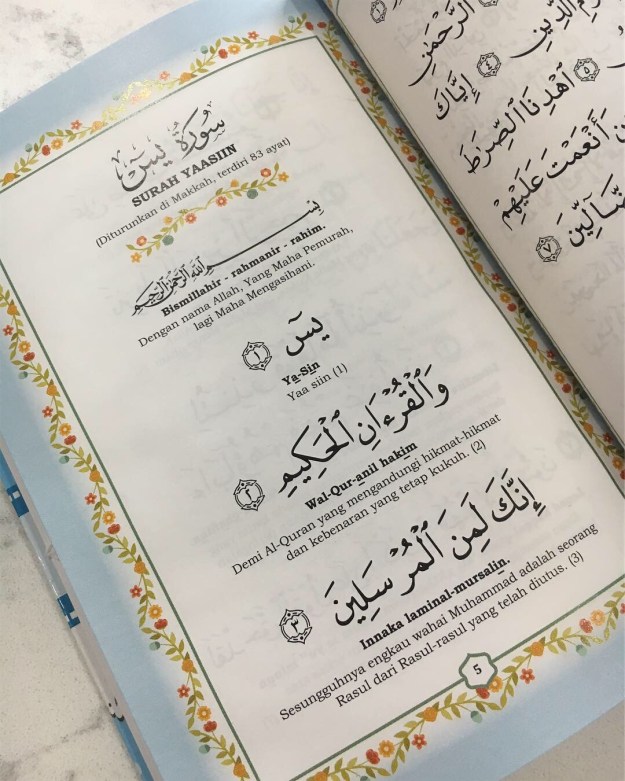 سُورَةُ يسٓ
SURAH YAASIIN
(Diturunkan di Makkah, terdiri 83 ayat)
بِسْمِ اللَّهِ الرَّحْمَٰنِ الرَّحِيمِ
Bismillahir - rahmanir - rahim.
Dengan nama Allah, Yang Maha Pemurah,
lagi Maha Mengasihani.
يسٓ ١
Ya-Sin
Yaa siin (1)
وَٱلْقُرْءَانِ ٱلْحَكِيمِ ٢
Wal-Qur-anil hakim
Demi Al-Quran yang mengandungi hikmat-hikmat
dan kebenaran yang tetap kukuh. (2)
إِنَّكَ لَمِنَ ٱلْمُرْسَلِينَ ٣
Innaka laminal-mursalin.
Sesungguhnya engkau wahai Muhammad adalah seorang
Rasul dari Rasul-rasul yang telah diutus. (3)
5
ٱلرَّحْمَٰنِ
ٱلدِّينِ ٤ إِيَّاكَ
٥ ٱهْدِنَا ٱلصِّرَٰطَ
أَنْعَمْتَ عَلَيْهِمْ
ٱلضَّآلِّينَ ٧